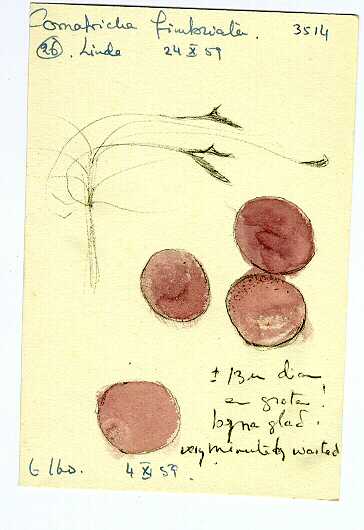 Comatricha fimbriata. 3514
(26). Linde 24 X 59
± 13 µ diam
en groter!
bijna glad.
very minutely warted
4 XI 59.